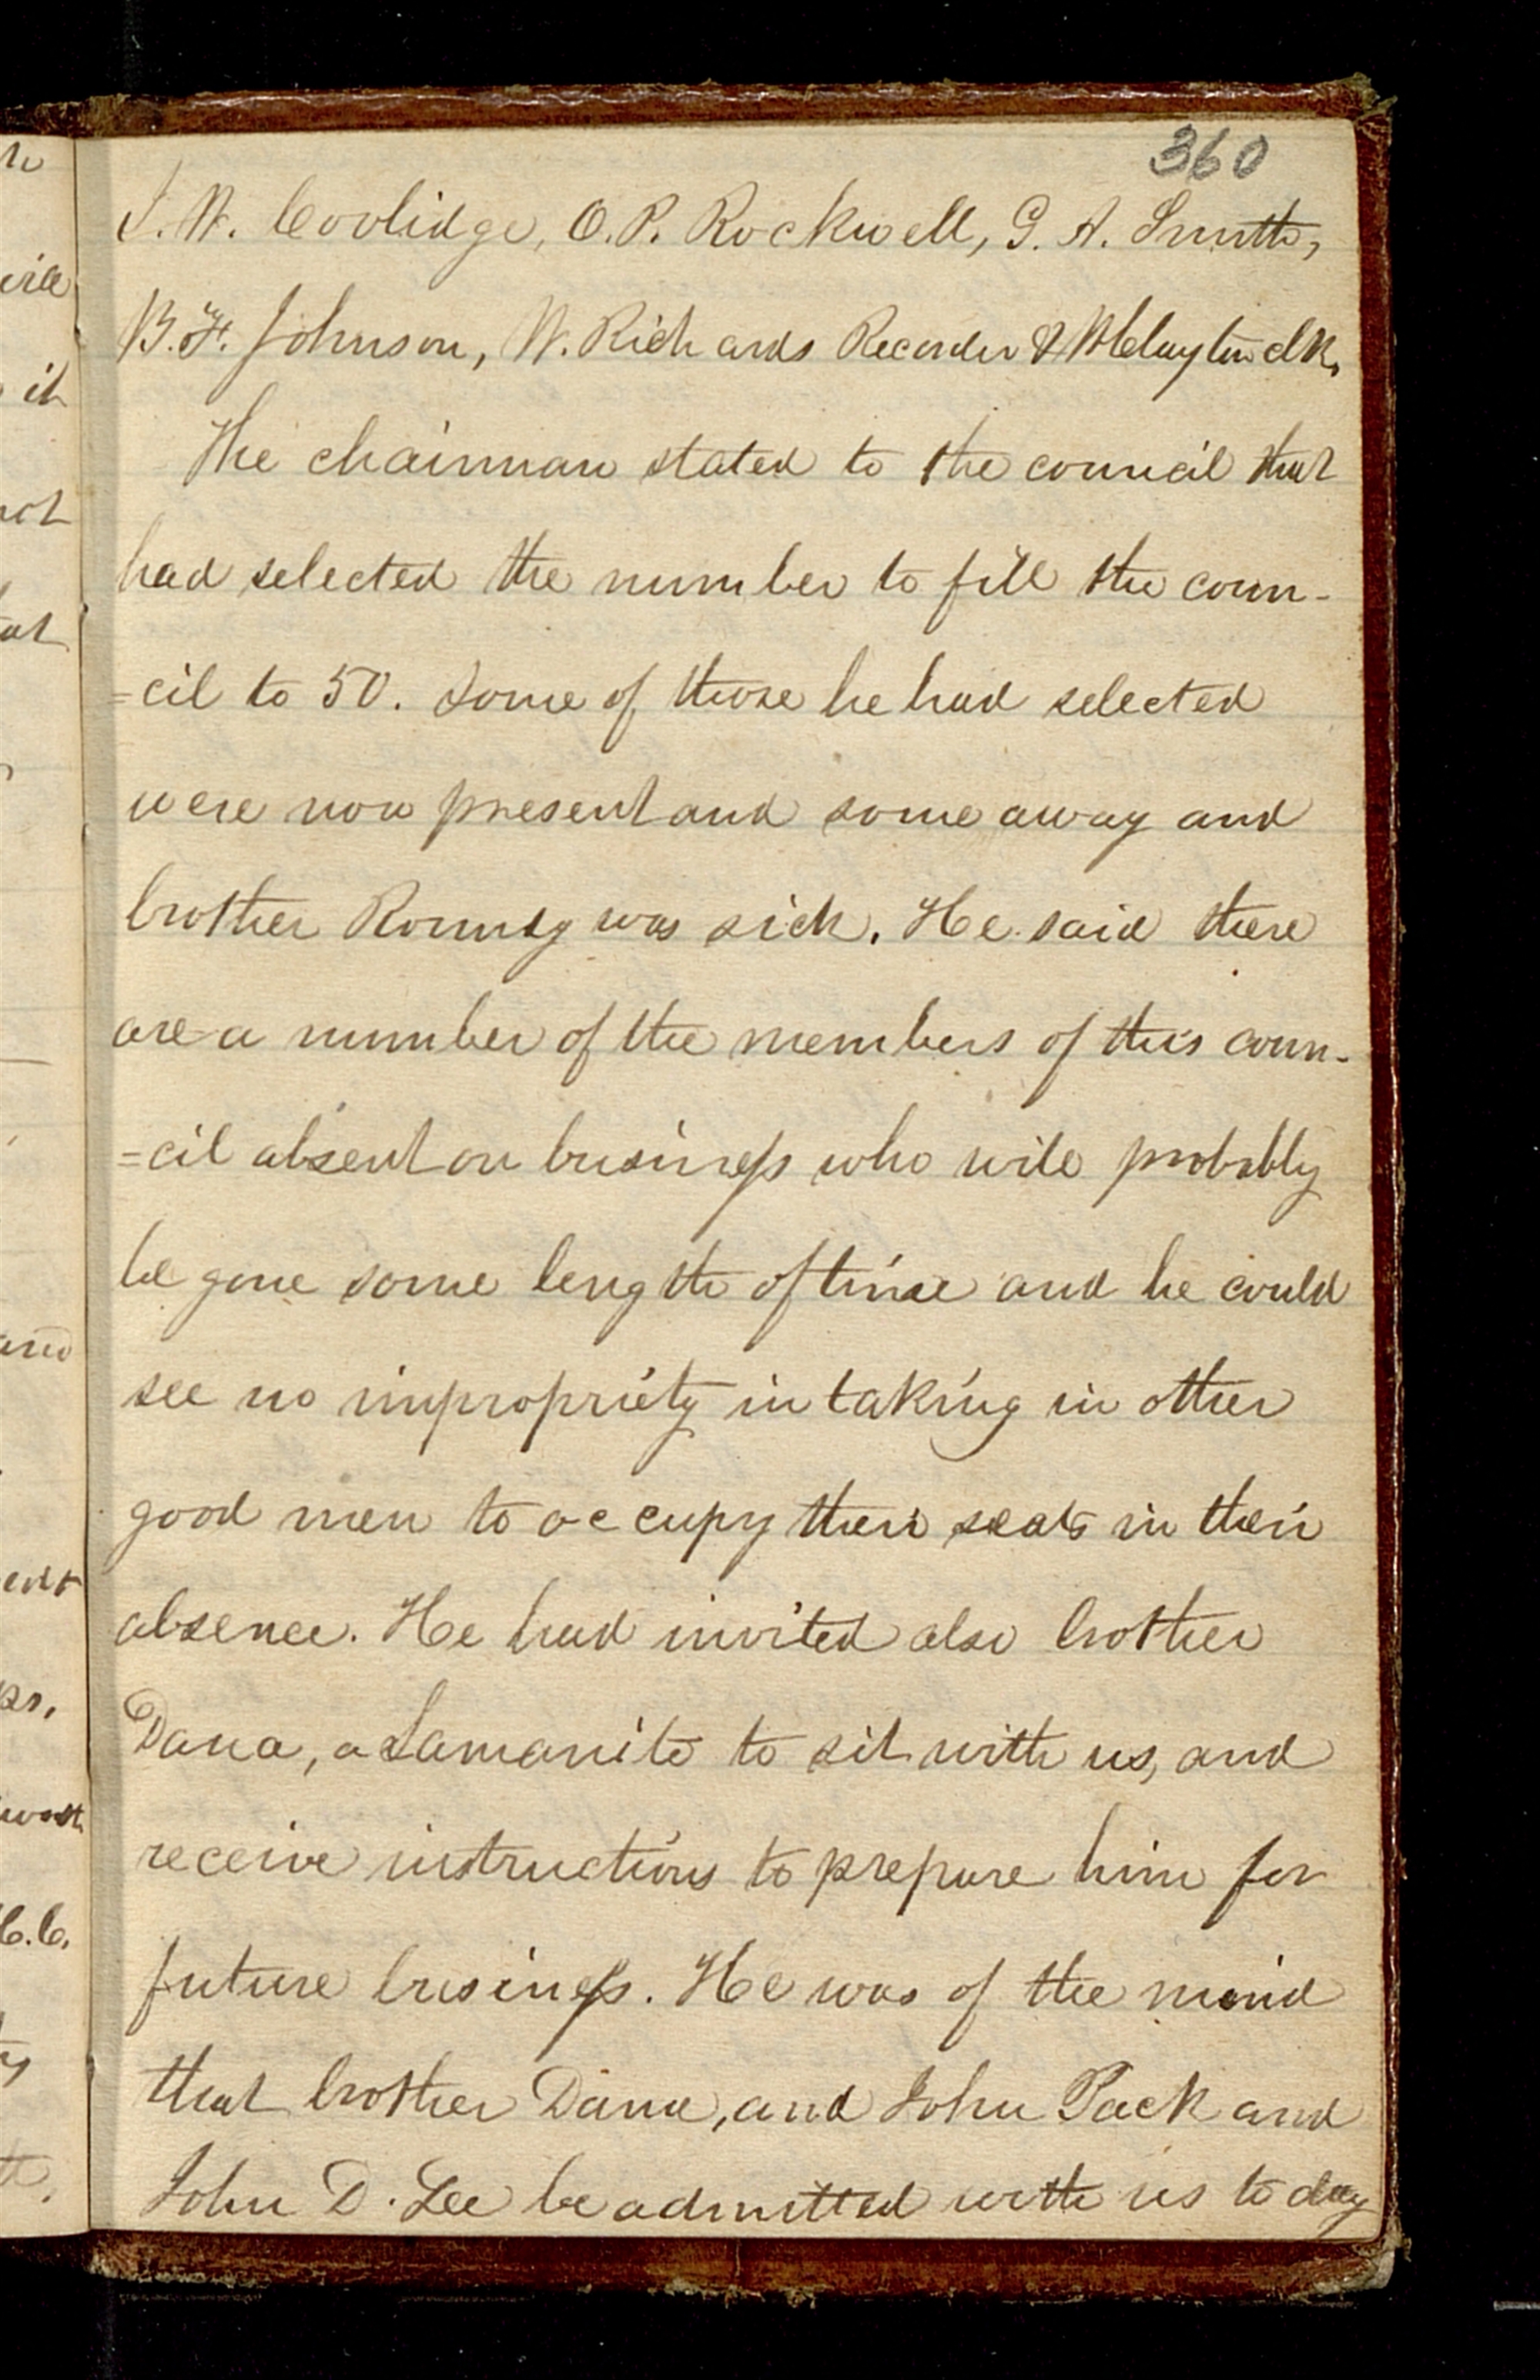 360
J. W. Coolidge, O. P. Rockwell, G. A. Smith,
B. F. Johnson, W. Richards Recorder & W Clayton clk.
The chairman stated to the council that
had selected the number to fill the coun-
=cil to 50. Some of those he had selected
were now present and some away and
brother Roundy was sick. He said there
are a number of the members of this coun-
=cil absent on business who will probably
be gone some length of time and he could
see no impropriety in taking in other
good men to occupy their seats in their
absence. He had invited also brother
Dana, a Lamanite to sit with us, and
receive instructions to prepare him for
future business. He was of the mind
that brother Dana, and John Pack and
John D. Lee be admitted with us to day